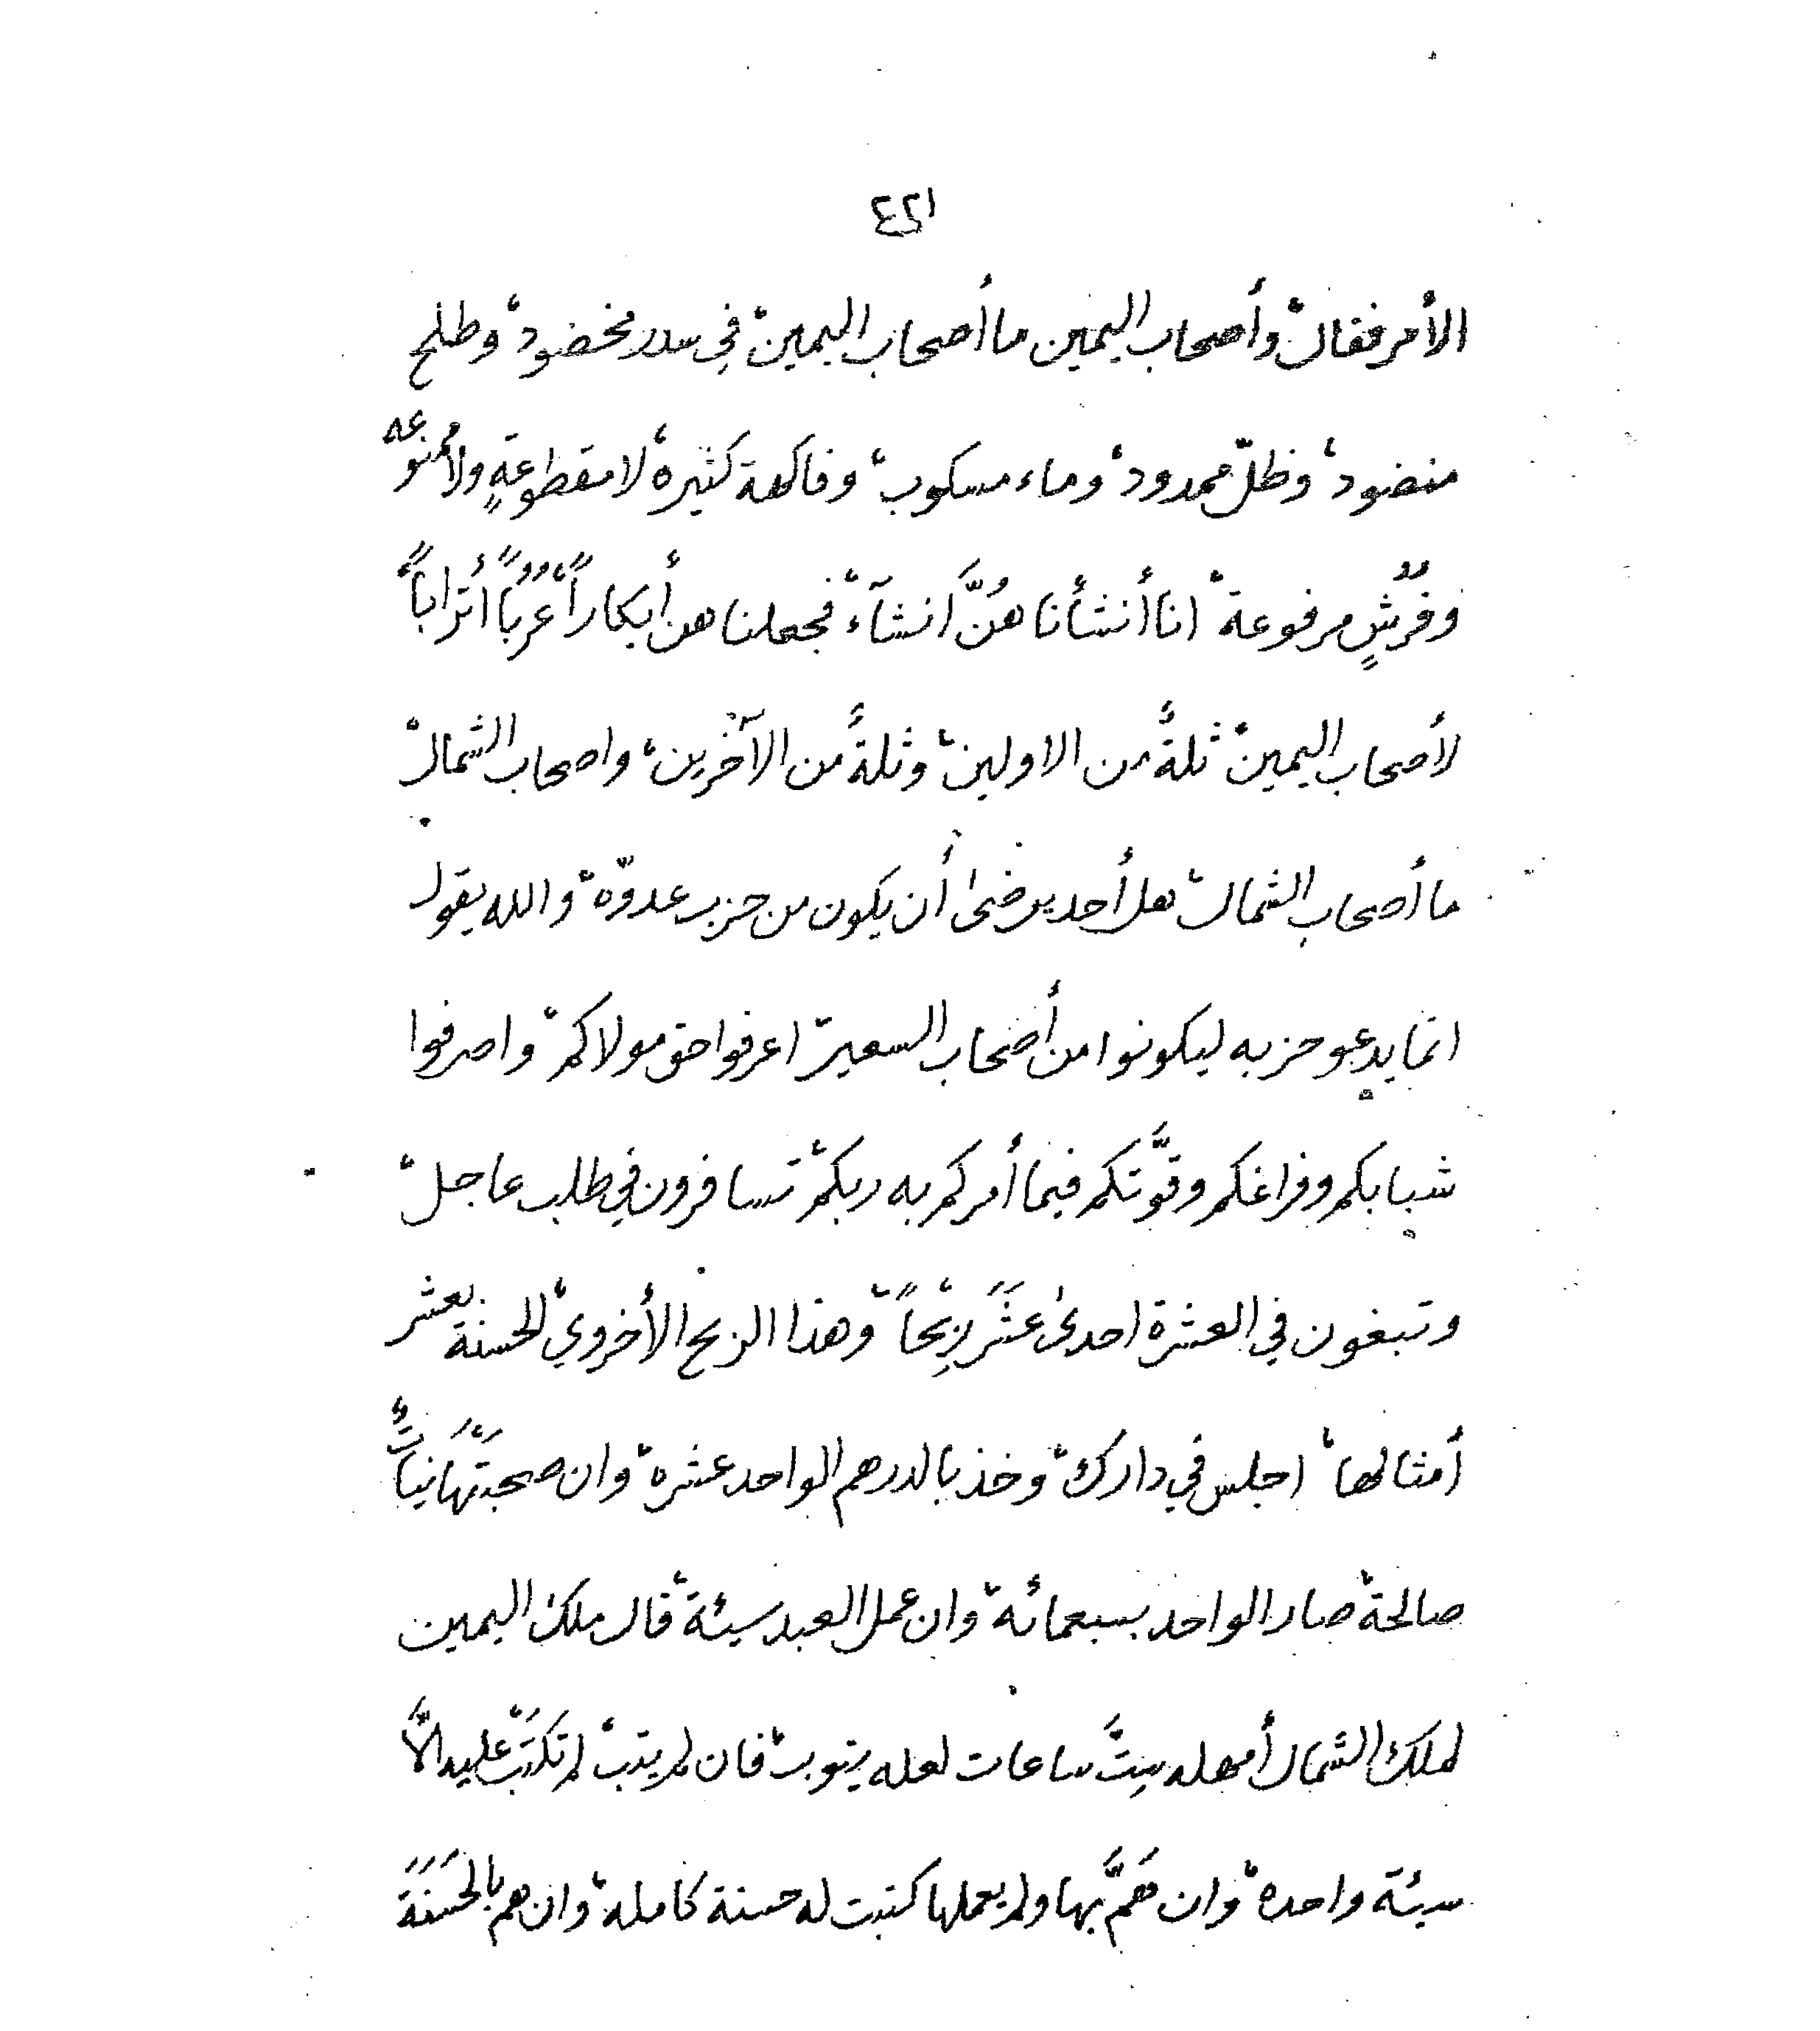 ٤٢١
الأمر فقال، وأصحاب اليمين ما أصحاب اليمين، في سدر مخضود، وطلح
منضود، وظلّ ممدود، وماء مسكوب، وفاكهة كثيره، لا مقطوعةٍ ولا ممنوعه
وفُرُشٍ مرفوعة، انا أنشأنا هُنَّ انشآء، فجعلنا هن أبكاراً، عُرُباً أتراباً،
لأصحاب اليمين، ثلةٌ من الاولين، وثلةٌ من الآخرين، واصحاب الشمال،
ما أصحاب الشمال، هل أحد يرضىٰ أن يكون من حزب عدوّه، والله يقول
انما يدعو حزبه ليكونوا من أصحاب السعير، اعرفوا حق مولاكم، واصرفوا
شبابكم وفراغكم وقوَّتكم فيما أمركم به ربكم، تسافرون في طلب عاجل،
وتبغون في العشرة احدىٰ عشَرَ رِبْحاً، وهذا الربح الأخروي، الحسنة بعشر
أمثالها، اجلس في دارك، وخذ بالدرهم الواحد عشره، وان صحبَتْهَا نياتٌ
صالحة، صار الواحد بسبعمائه، وان عمل العبد سيئة، قال ملك اليمين
لملك الشمال أمهله سِتَّ ساعات لعله يتوب، فان لم يتب، لم تكتَبْ عليه الاَّ
سيئة واحده، وان هَمَّ بها ولم يعملها كتبت له حسنة كامله، وان هم بالحَسَنَة